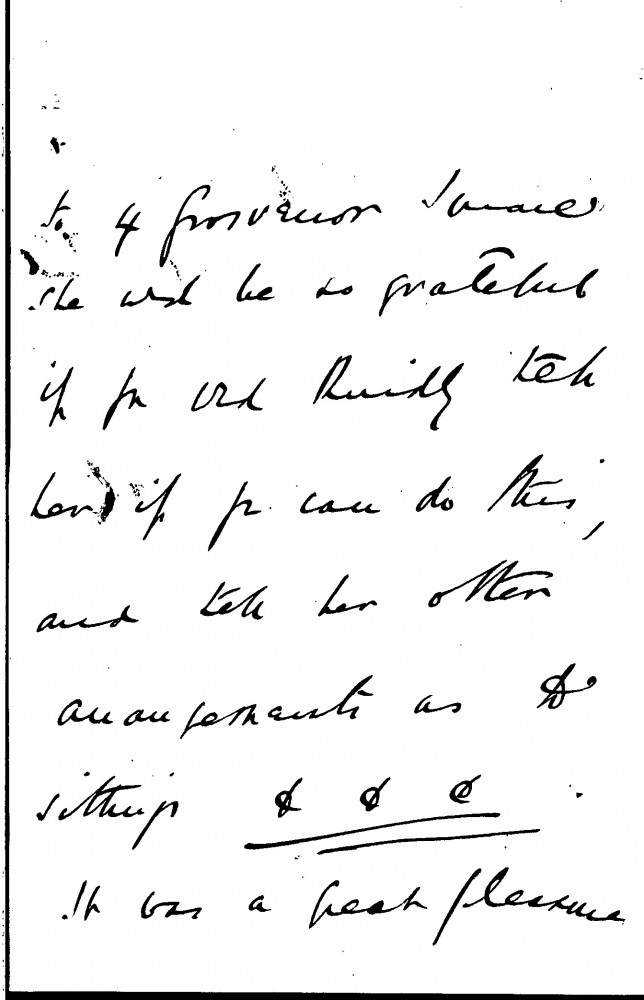 to 4 Grosvenor Square
she wd be so grateful
if yr wd kindly tell
her if yr can do this,
and tell her other
arrangements as to
sittings & & &
It was a great pleasure